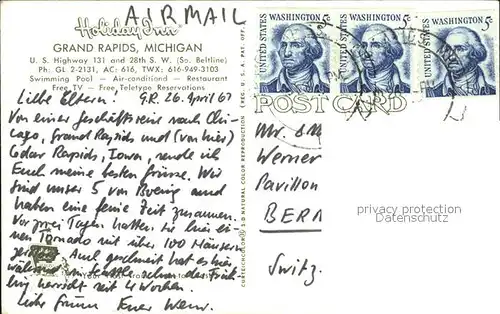 AIR MAIL
Holiday Inn
GRAND RAPIDS, MICHIGAN
U. S. Highway 131 and 28th S. W. (So. Beltline)
Ph: GL 2-2131, AC: 616, TWX: 616-949-3103
Swimming Pool — Air-conditioned — Restaurant
Free TV — Free Teletype Reservations
Liebe Eltern! G.R. 26. April 67
Von einer Geschäftsreise nach Chi-
cago, Grand Rapids und (von hier)
Cedar Rapids, Iowa, sende ich
Euch meine besten Grüsse. Wir
sind unser 5 von Boeing und
haben eine feine Zeit zusammen.
Vor zwei Tagen hatten sie hier ei-
nen Tornado mit über 100 Häusern
Auch geschneit hat es hier
während in Seattle schon der Früh-
ling herrscht seit 4 Wochen.
Liebe Grüsse Euer
CURTEICHCOLOR® 3-D NATURAL COLOR REPRODUCTION
PAT. OFF.
UNITED STATES WASHINGTON 5c
UNITED STATES WASHINGTON 5c
UNITED STATES WASHINGTON 5c
POST CARD
Werner
Pavillon
BERN
Switz.
privacy protection
Datenschutz